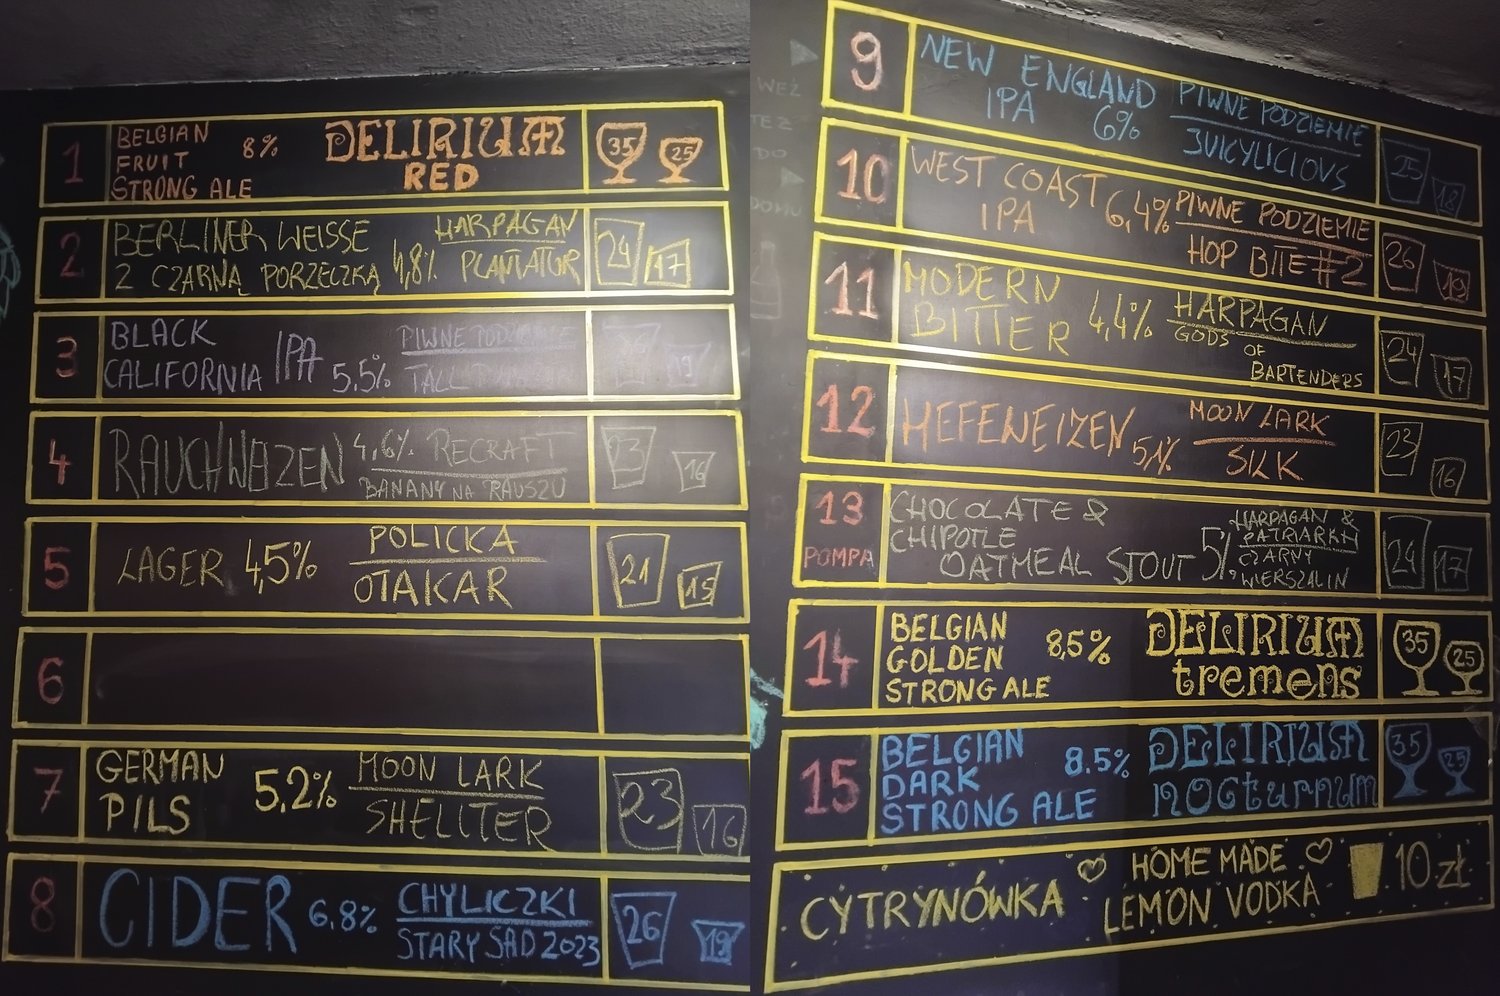 1
BELGIAN
FRUIT
STRONG ALE
8%
DELIRIUM
RED
35
25
2
BERLINER WEISSE
Z CZARNĄ PORZECZKĄ
4,8%
HARPAGAN
PLANTATOR
24
17
3
BLACK
CALIFORNIA
IPA
5.5%
PIWNE PODZIEMIE
TALL
19
4
RAUCHWEIZEN
4,6%
RECRAFT
BANANY NA RAUSZU
23
16
5
LAGER
4,5%
POLICKA
OTAKAR
21
15
6
7
GERMAN
PILS
5,2%
MOON LARK
SHELLTER
23
16
8
CIDER
6,8%
CHYLICZKI
STARY SAD 2023
26
19
WEŹ
TEŻ
DO
DOMU
9
NEW ENGLAND
IPA
6%
PIWNE PODZIEMIE
JUICYLICIOUS
25
18
10
WEST COAST
IPA
6,4%
PIWNE PODZIEMIE
HOP BITE #2
26
19
11
MODERN
BITTER
4,4%
HARPAGAN
GODS
OF
BARTENDERS
24
17
12
HEFEWEIZEN
5,1%
MOON LARK
SILK
23
16
13
POMPA
CHOCOLATE &
CHIPOTLE
OATMEAL STOUT
5%
HARPAGAN &
PATRIARKH
CZARNY
WIERSZALIN
24
17
14
BELGIAN
GOLDEN
STRONG ALE
8,5%
DELIRIUM
tremens
35
25
15
BELGIAN
DARK
STRONG ALE
8.5%
DELIRIUM
nocturnum
35
25
CYTRYNÓWKA
HOME MADE
LEMON VODKA
10 zł